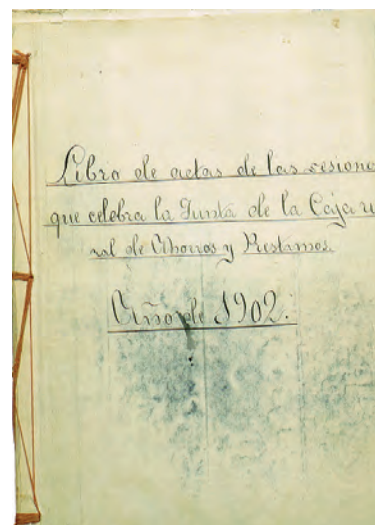 Libro de actas de las sesione
que celebra la Junta de la Caja ru
ral de Ahorros y Prestamos
Año de 1902.